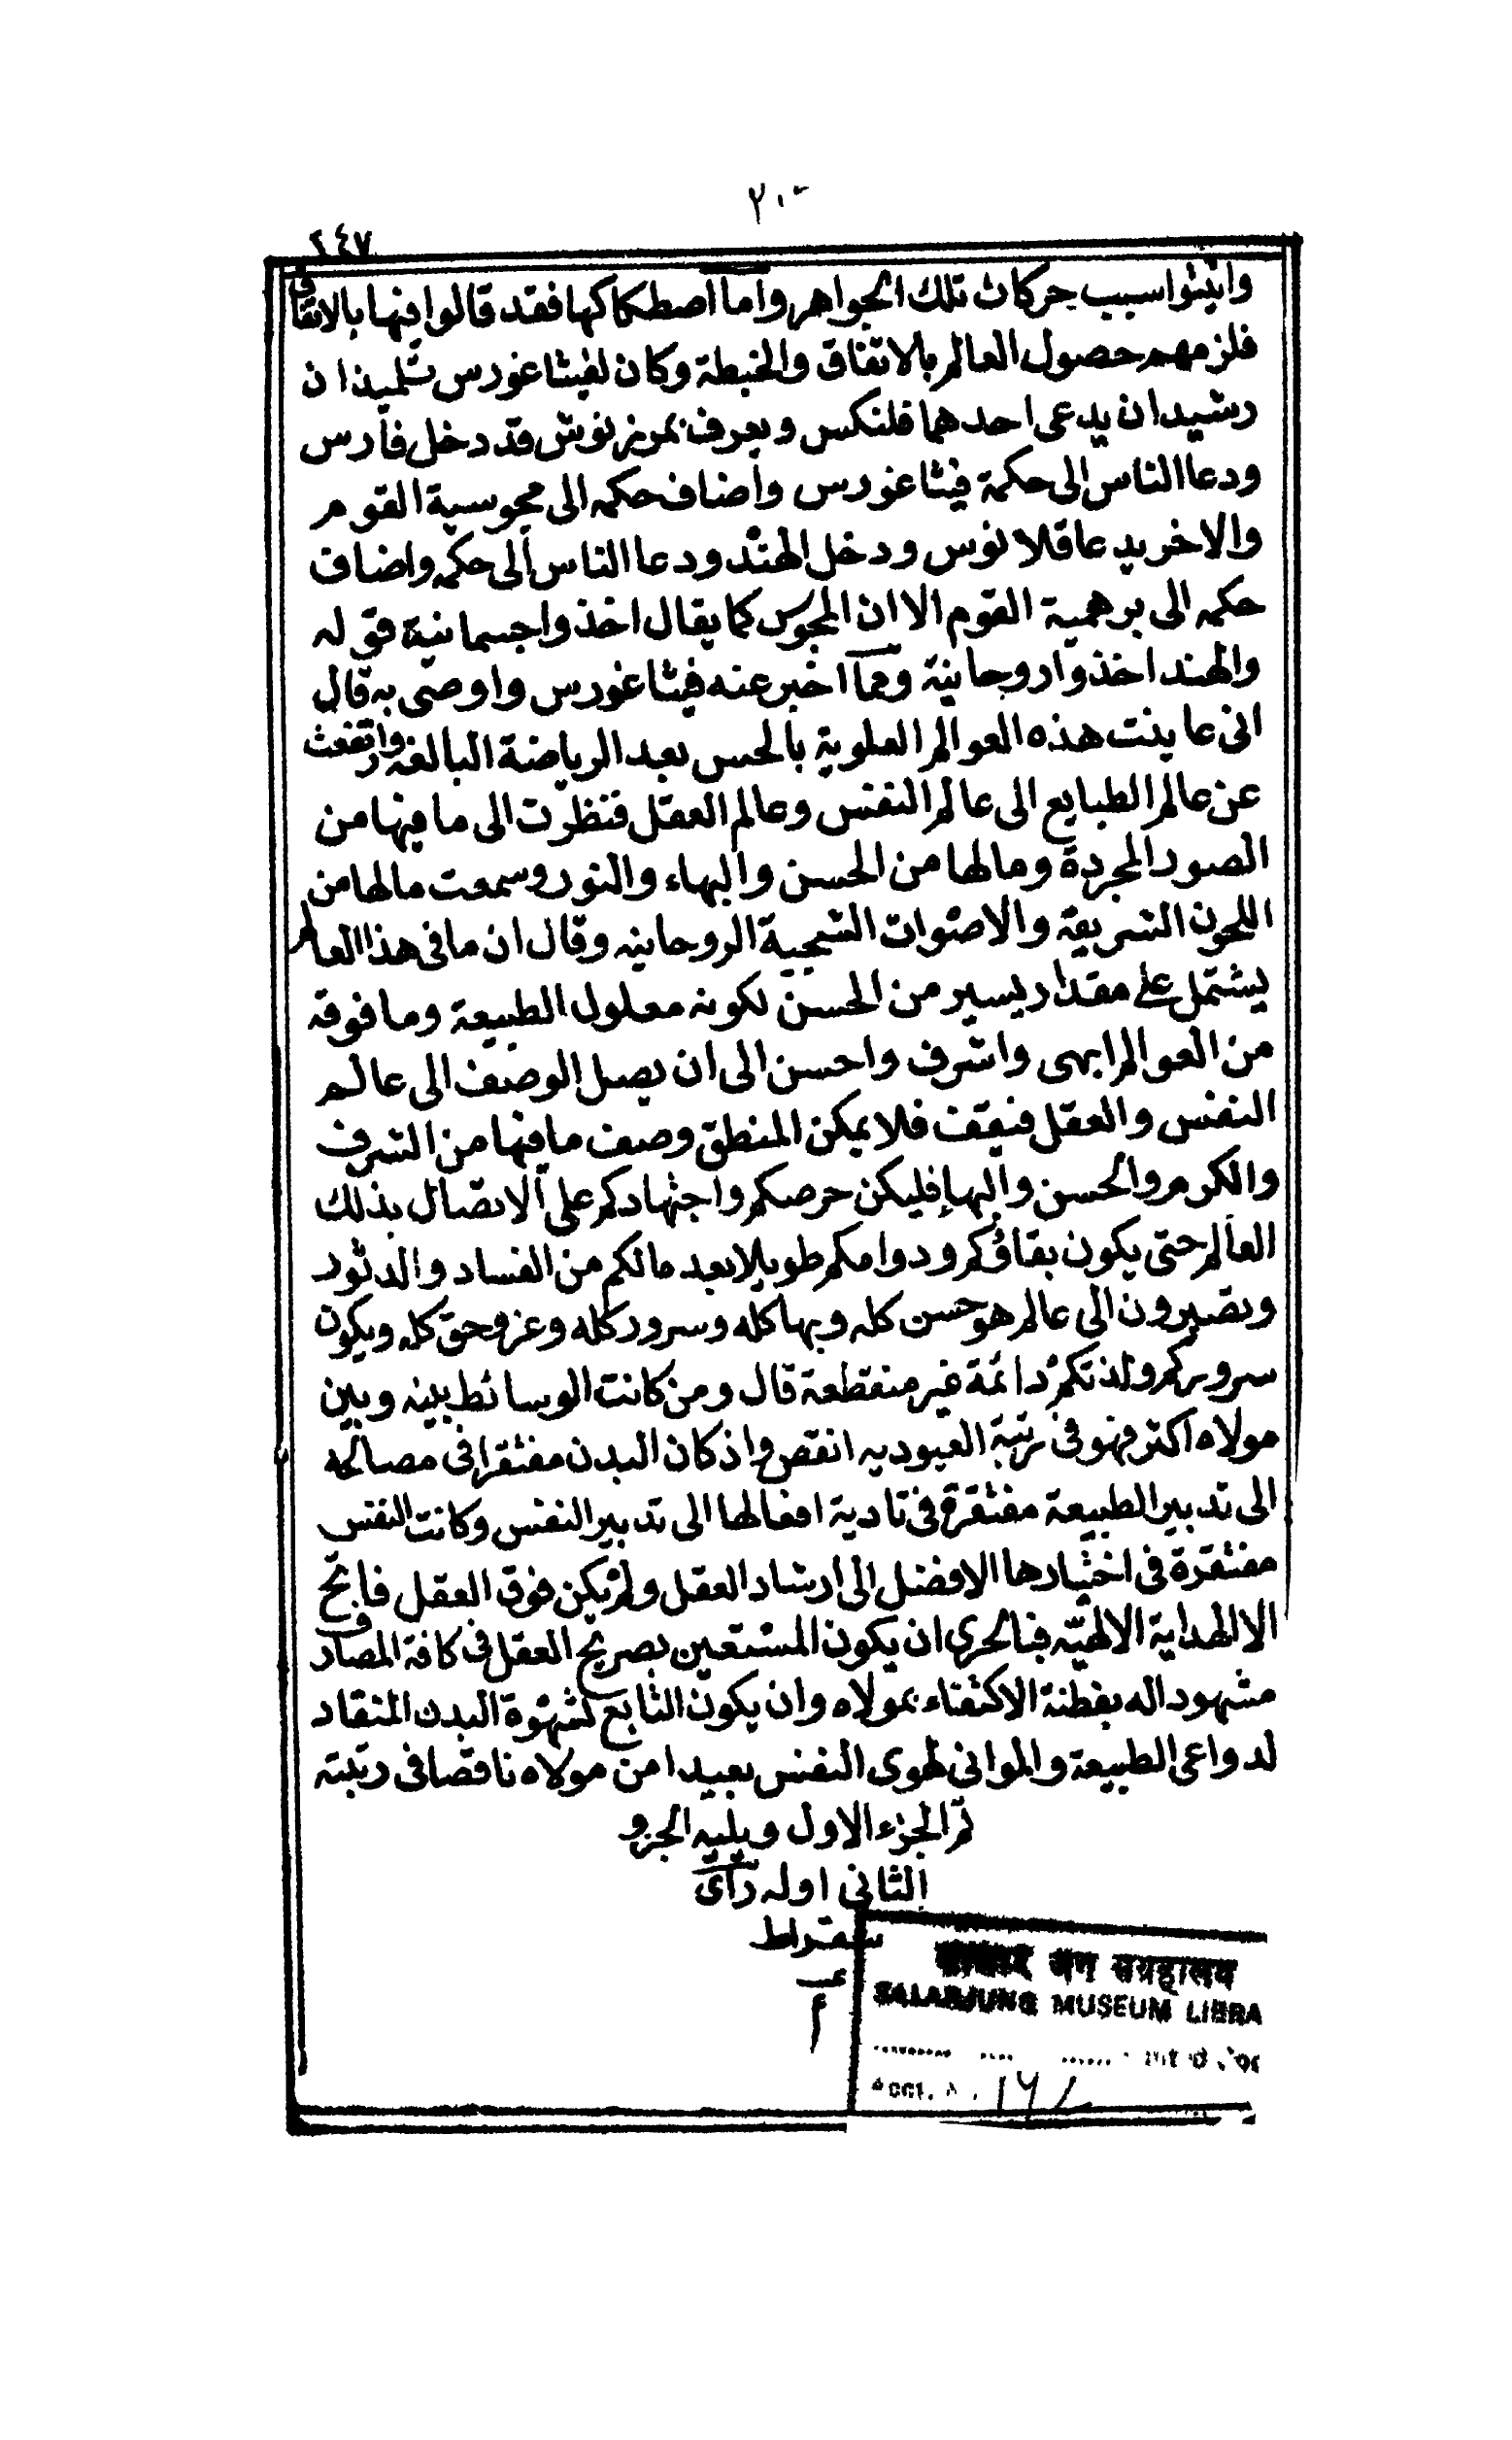 ٢٤٧
واثبتوا سبب حركات تلك الجواهر واما اصطكاكها فقد قالوا فيها بالاتفاق
فلزمهم حصول العالم بالاتفاق والخبطة وكان لفيثاغورس تلميذان
رشيدان يدعى احدهما فلنكس ويعرف بمرزنوش قد دخل فارس
ودعا الناس الى حكمة فيثاغورس واضاف حكمه الى مجوسية القوم
والاخر يدعا قلانوس ودخل الهند ودعا الناس الى حكمه واضاف
حكمه الى برهمية القوم الا ان المجوس كما يقال اخذوا جسمانية قوله
والهند اخذوا روحانية ومما اخبر عنه فيثاغورس واوصى به قال
انى عاينت هذه العوالم العلوية بالحس بعد الرياضة البالغه وارتفعت
عن عالم الطبايع الى عالم النفس وعالم العقل فنظرت الى ما فيها من
الصور المجردة ومالها من الحسن والبهاء والنور وسمعت مالها من
اللحون الشريفة والاصوات الشجية الروحانيه وقال ان ما فى هذا العالم
يشتمل على مقدار يسير من الحسن لكونه معلول الطبيعة وما فوقه
من العوالم ابهى واشرف واحسن الى ان يصل الوصف الى عالم
النفس والعقل فيقف فلا يمكن المنطق وصف ما فيها من الشرف
والكرم والحسن والبها فليكن حرصكم واجتهادكم على الاتصال بذلك
العالم حتى يكون بقاؤكم ودوامكم طويلا بعد مالكم من الفساد والدثور
وتصيرون الى عالم هو حسن كله وبها كله وسرور كله وعز وحق كله ويكون
سروركم ولذتكم دائمة غير منقطعة قال ومن كانت الوسائط بينه وبين
مولاه اكثر فهو فى رتبة العبوديه انقص واذ كان البدن مفتقرا فى مصالحه
الى تدبير الطبيعة مفتقرة فى تادية افعالها الى تدبير النفس وكانت النفس
مفتقرة فى اختيارها الافضل الى ارشاد العقل ولم يكن فوق العقل فاتح
الا الهداية الالهيّه فبالحرى ان يكون المستعين بصريح العقل فى كافة المصارف
مشهودا له بفطنة الاكتفاء بمولاه وان يكون التابع لشهوة البدن المنقاد
لدواعى الطبيعة والموانى لهوى النفس بعيدا من مولاه ناقصا فى رتبته
تم الجزء الاول ويليه الجزو
الثانى اوله رآى
سقراط
जंग संग्रहालय
SALARJUNG MUSEUM LIBRA